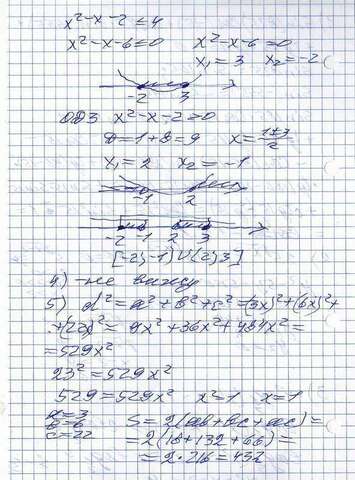 x²-x-2≤4
x²-x-6≤0 x²-x-6=0
x₁=3 x₂=-2
-2 3
ОДЗ x²-x-2=0
D=1+8=9 x=(1±3)/2
x₁=2 x₂=-1
-1 2
-2 -1 2 3
[-2;-1)∪(2;3]
4) -не вижу
5) d²=a²+b²+c²=(3x)²+(6x)²+
+(22x)²=9x²+36x²+484x²=
=529x²
23²=529x²
529=529x² x²=1 x=1
a=3 S=2(ab+bc+ac)=
b=6 =2(18+132+66)=
c=22 =2·216=432